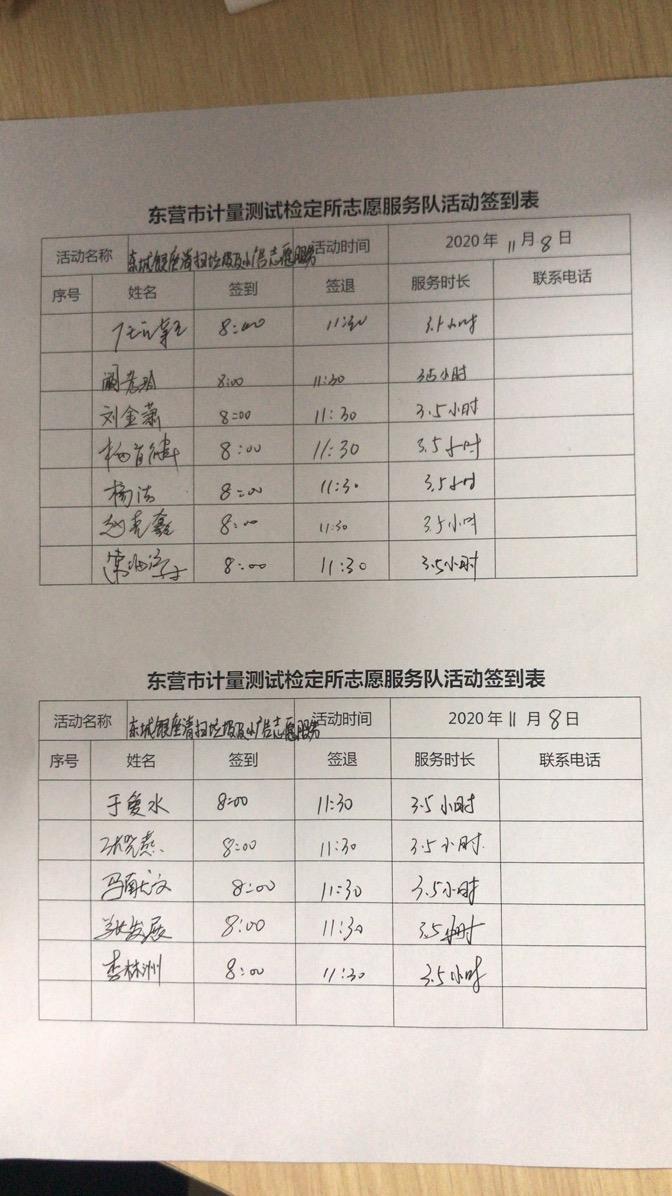 东营市计量测试检定所志愿服务队活动签到表
活动名称 东城银座清扫垃圾及小广告志愿服务 活动时间 2020 年 11 月 8 日
序号 姓名 签到 签退 服务时长 联系电话
8:00 11:30 3.5小时
8:00 11:30 3.5小时
刘金萧 8:00 11:30 3.5小时
8:00 11:30 3.5小时
杨洁 8:00 11:30 3.5小时
8:00 11:30 3.5小时
8:00 11:30 3.5小时
东营市计量测试检定所志愿服务队活动签到表
活动名称 东城银座清扫垃圾及小广告志愿服务 活动时间 2020 年 11 月 8 日
序号 姓名 签到 签退 服务时长 联系电话
于爱水 8:00 11:30 3.5小时
8:00 11:30 3.5小时
马献文 8:00 11:30 3.5小时
发展 8:00 11:30 3.5小时
李林洲 8:00 11:30 3.5小时